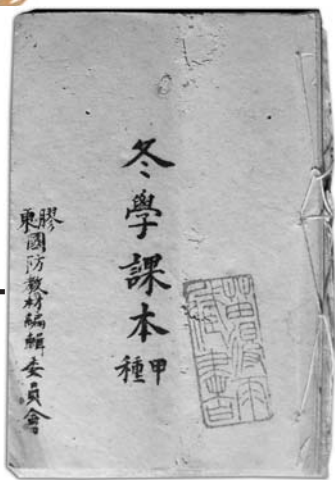 冬學課本
甲種
膠東國防教材編輯委員會